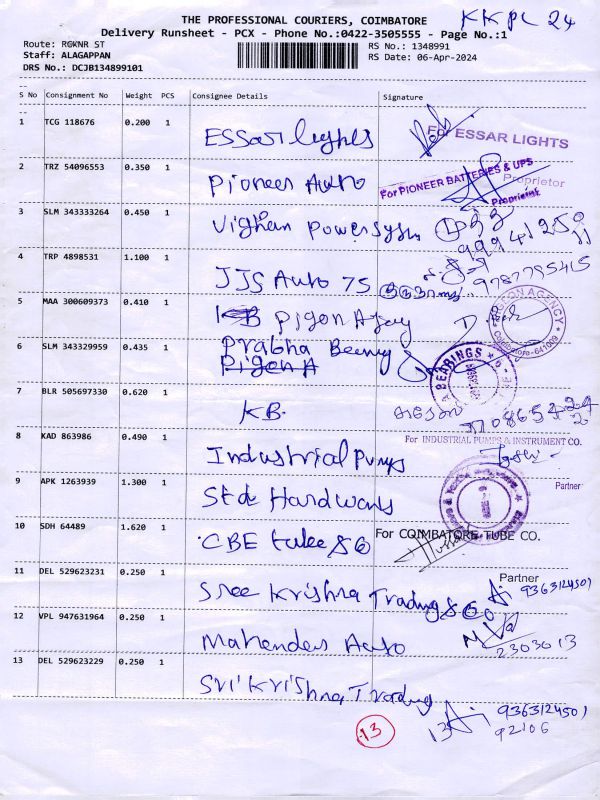 THE PROFESSIONAL COURIERS, COIMBATORE
KKPL 24
Delivery Runsheet - PCX - Phone No.:0422-3505555 - Page No.:1
Route: RGKNR ST
RS No.: 1348991
Staff: ALAGAPPAN
RS Date: 06-Apr-2024
DRS No.: DCJB134899101
S No Consignment No Weight PCS Consignee Details Signature
1 TCG 118676 0.200 1 Essar lights For ESSAR LIGHTS
Proprietor
2 TRZ 54096553 0.350 1 Pioneer Auto For PIONEER BATTERIES & UPS
Proprietrix
3 SLM 343333264 0.450 1 Vighan Powersystm
4 TRP 4898531 1.100 1 JJS Auto 75 9787795415
5 MAA 300609373 0.410 1 Pigon Agey
6 SLM 343329959 0.435 1 Prabha Beering
Pigen A
BEARINGS
7 BLR 505697330 0.620 1 KB.
8 KAD 863986 0.490 1 Industrial Pumps For INDUSTRIAL PUMPS & INSTRUMENT CO.
Partner
9 APK 1263939 1.300 1 Std Hardwars
10 SDH 64489 1.620 1 CBE tube & Co For COIMBATORE TUBE CO.
Partner
11 DEL 529623231 0.250 1 Sree Krishna Trading & Co 9363124501
12 VPL 947631964 0.250 1 Mahender Auto 2303013
13 DEL 529623229 0.250 1 Sri Krishna Trading
9363124501
13 13 92106